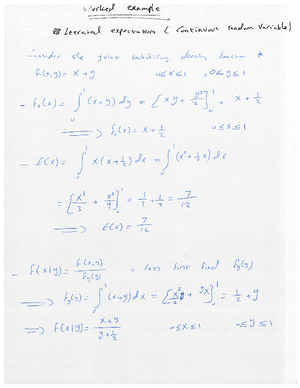 Worked example
Iterated expectations ( Continuous random variable)
Consider the joint probability density function
f(x,y) = x + y 0≤x≤1 , 0≤y≤1
- fx(x) = ∫₀¹ (x+y) dy = [xy + y²/2]₀¹ = x + 1/2
⟹ fx(x) = x + 1/2 0≤x≤1
- E(x) = ∫₀¹ x(x+½) dx = ∫₀¹ (x²+½x) dx
= [x³/3 + x²/4]₀¹ = 1/3 + 1/4 = 7/12
⟹ E(x) = 7/12
- f(x|y) = f(x,y)/fy(y) , lets first find fy(y)
⟹ fy(y) = ∫₀¹ (x+y) dx = [x²/2 + yx]₀¹ = 1/2 + y
⟹ f(x|y) = (x+y)/(y+½) 0≤x≤1 0≤y≤1